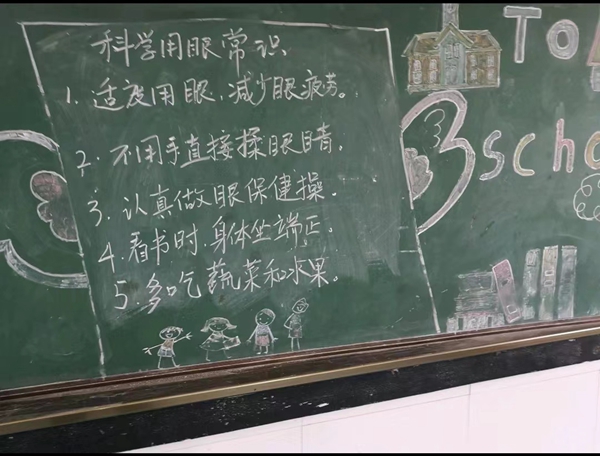 科学用眼常识
1. 适度用眼,减少眼疲劳。
2. 不用手直接揉眼睛。
3. 认真做眼保健操。
4. 看书时,身体坐端正。
5. 多吃蔬菜和水果。
To
scho